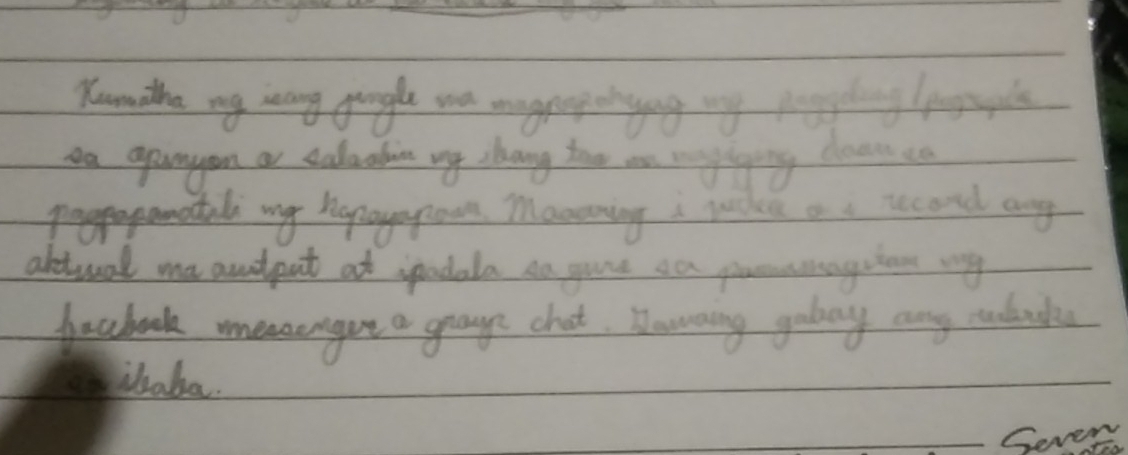 Kumatha ng isang jingle na magpapahayag ng paggalang/pagrespeto
sa opinyon o saloobin ng ibang tao na magiging daan sa
pagpapanatili ng kapayapaan. Maaaring i video o i record ang
aktuwal na awtput at ipadala sa guro sa pamamagitan ng
facebook messenger o group chat. Gawaing gabay ang rubriks
sa ibaba.
Seven